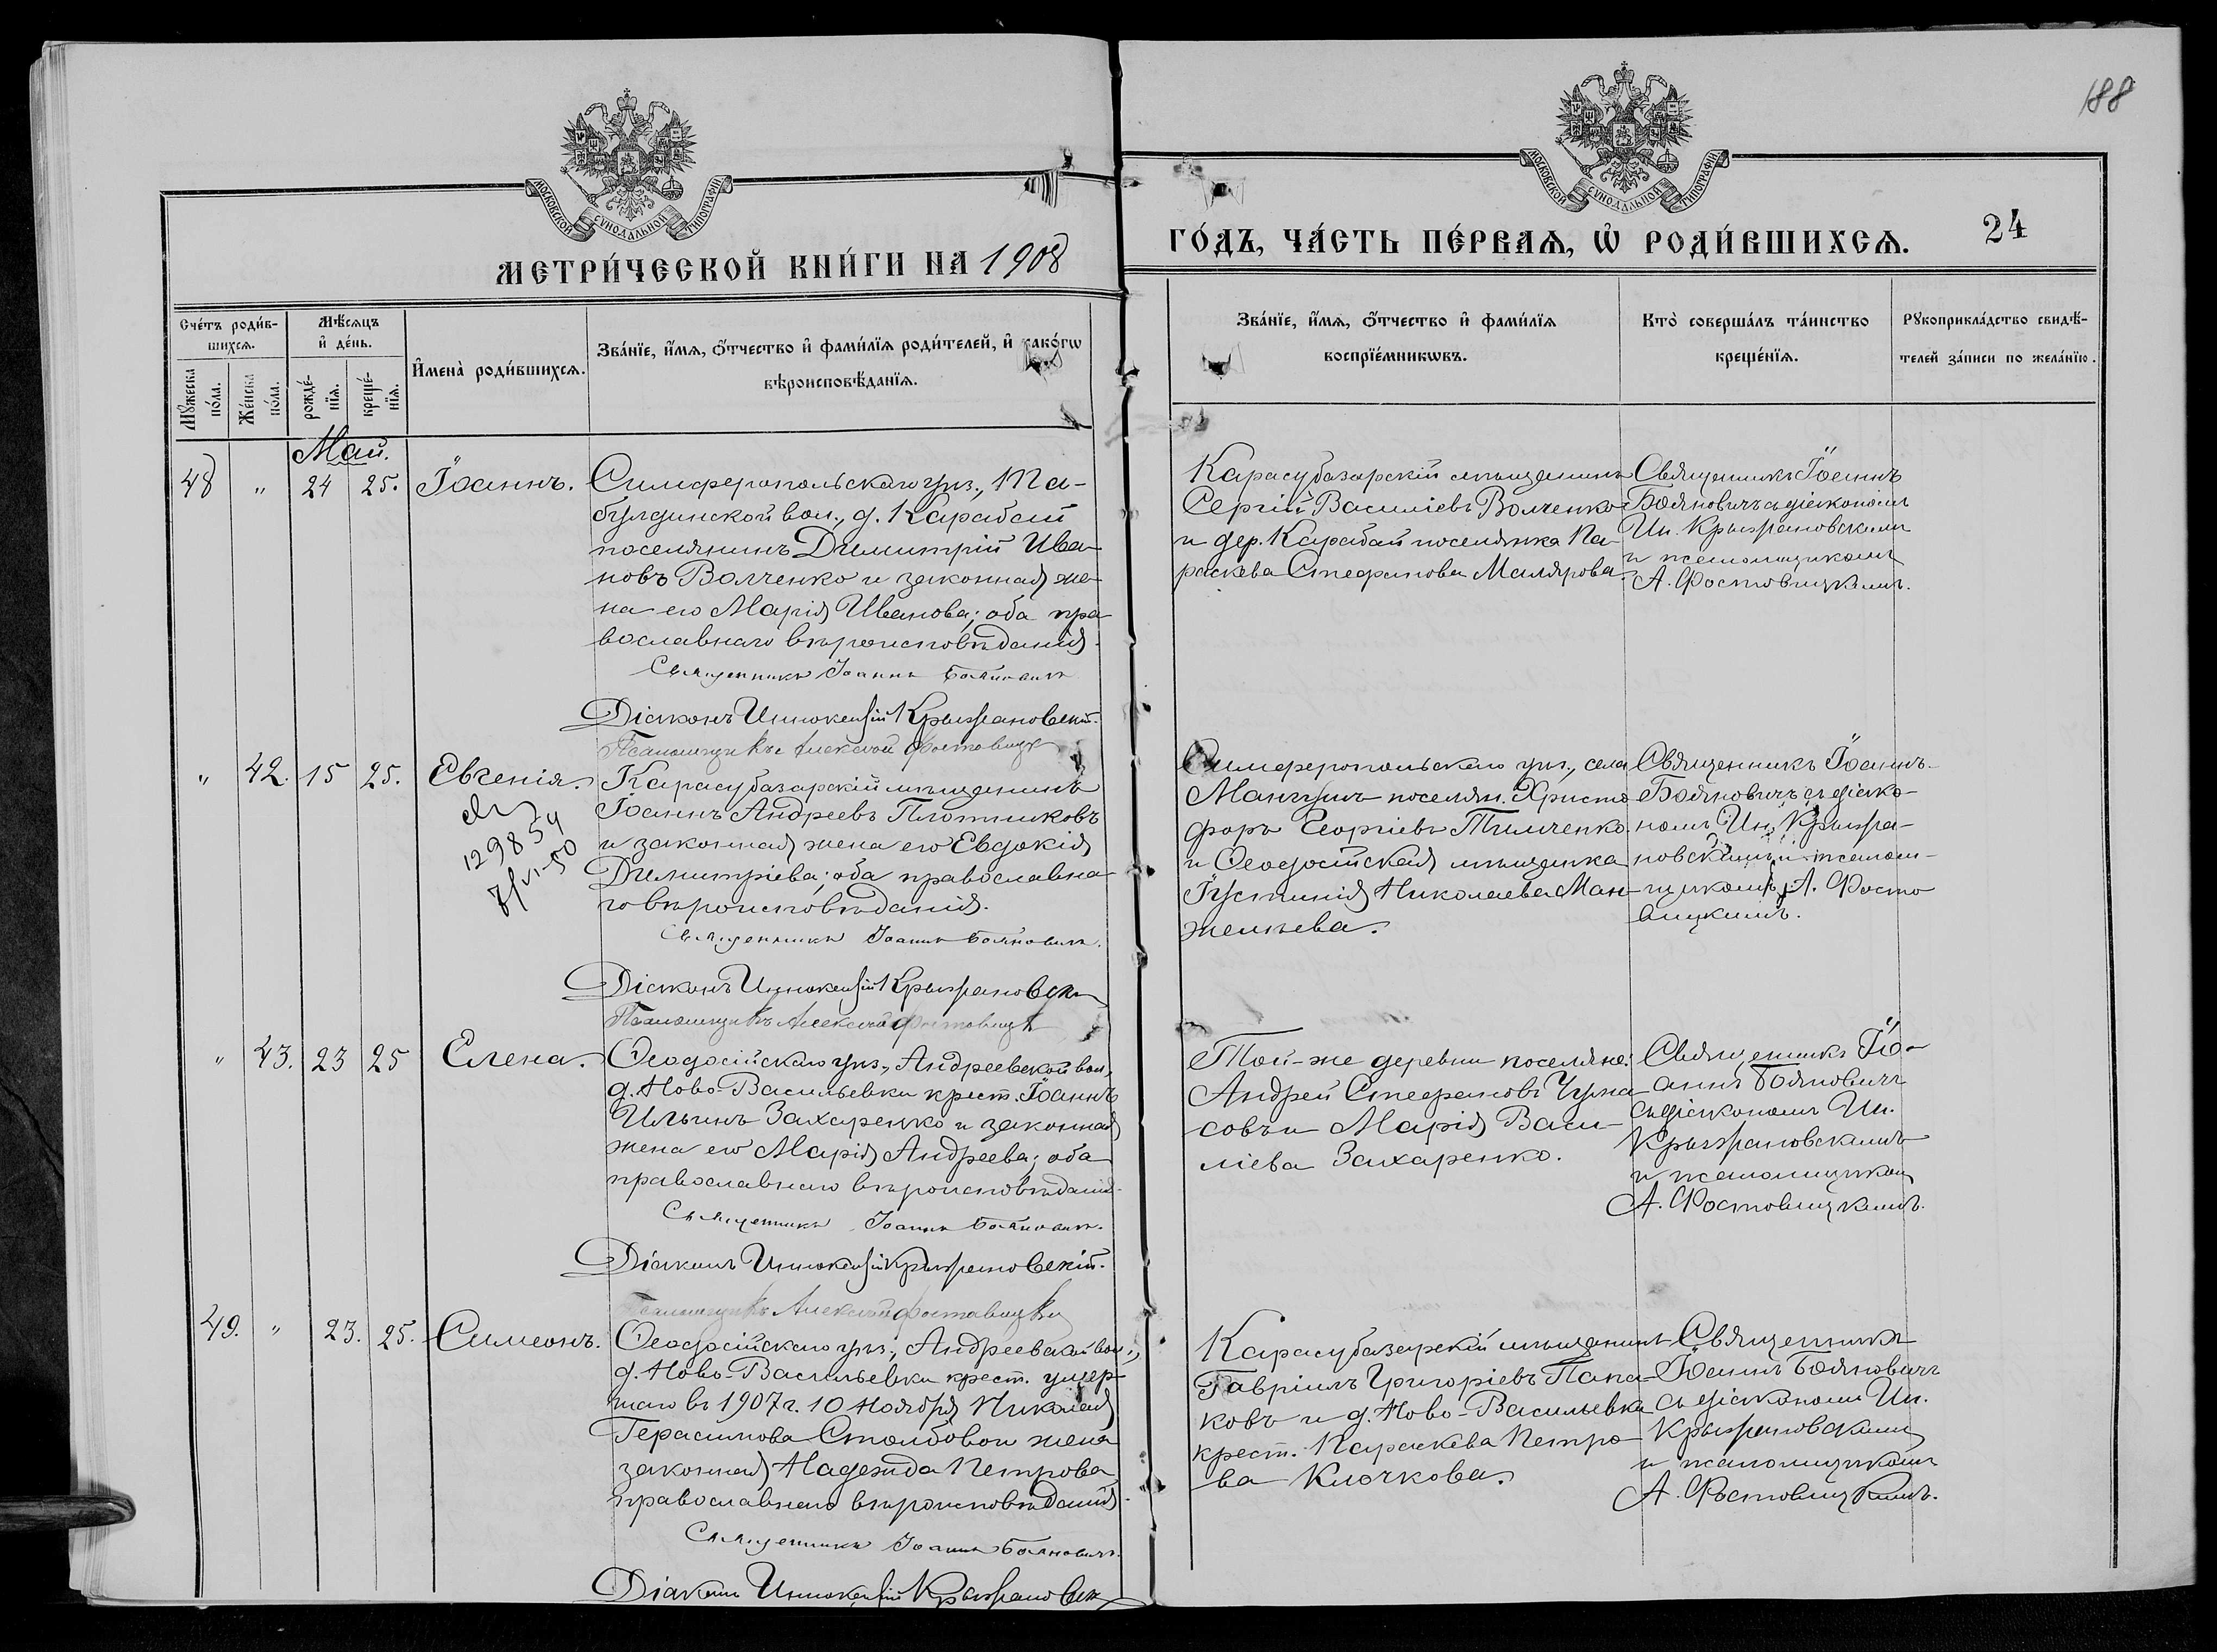 188
МОСКОВСКОЙ СѴНОДАЛЬНОЙ ТИПОГРАФІИ
МОСКОВСКОЙ СѴНОДАЛЬНОЙ ТИПОГРАФІИ
МЕТРИ́ЧЕСКОЙ КНИ́ГИ НА 1908
ГО́ДЪ, ЧА́СТЬ ПЕ́РВАѦ, Ѡ҆ РОДИ́ВШИХСѦ.
24
Сче́тъ роди́в-
шихсѧ.
Мꙋ́жеска
по́ла.
Же́нска
по́ла.
Мѣ́сѧцъ
и҆ де́нь.
рожде́-
нїѧ.
креще́-
нїѧ.
И҆мена̀ роди́вшихсѧ.
Зва́нїе, и҆́мѧ, ѻ҆́тчество и҆ фами́лїѧ роди́телей, и҆ како́гѡ
вѣроисповѣ́данїѧ.
Зва́нїе, и҆́мѧ, ѻ҆́тчество и҆ фами́лїѧ
воспрїе́мникѡвъ.
Кто̀ соверша́лъ та́инство
креще́нїѧ.
Рꙋкоприкла́дство свидѣ́-
телей за́писи по жела́нїю.
Май.
48 " 24 25. Іоаннъ.
Симферопольскаго уѣз., Та-
булдинской вол., д. Карабай
поселянинъ Димитрій Ива-
новъ Волченко и законная же-
на его Марія Иванова; оба пра-
вославнаго вѣроисповѣданія.
Священникъ Іоаннъ Бояновичъ
Діаконъ Иннокентій Крыжановскій.
Псаломщикъ Алексѣй Фостовицк
Карасубазарскій мѣщанинъ
Сергій Василіевъ Волченко
и дер. Карабай поселянка Па-
раскева Стефанова Малярова.
Священникъ Іоаннъ
Бояновичъ съ діакономъ
Ин. Крыжановскимъ
и псаломщикомъ
А. Фостовицкимъ.
" 42. 15 25. Евгенія.
129854
7/VI-50
Карасубазарскій мѣщанинъ
Іоаннъ Андреевъ Плотниковъ
и законная жена его Евдокія
Димитріева; оба православна-
го вѣроисповѣданія.
Священникъ Іоаннъ Бояновичъ.
Діаконъ Иннокентій Крыжановски
Псаломщикъ Алексѣй Фостовицк
Симферопольскаго уѣз., села
Мангушъ поселян. Христо
форъ Георгіевъ Тимченко
и Ѳеодосійская мѣщанка
Іустинія Николаева Ман-
желѣева.
Священникъ Іоаннъ
Бояновичъ съ діако-
номъ Ин. Крыжа-
новскимъ и псалом-
щикомъ А. Фосто
вицкимъ.
" 43. 23 25 Елена.
Ѳеодосійскаго уѣз., Андреевской вол.,
д. Ново-Васильевки крест. Іоаннъ
Ильинъ Захаренко и законная
жена его Марія Андреева; оба
православнаго вѣроисповѣданія.
Священникъ Іоаннъ Бояновичъ.
Діаконъ Иннокентій Крыжановскій.
Псаломщикъ Алексѣй Фостовицкі
Той-же деревни поселяне:
Андрей Стефановъ Чума-
совъ и Марія Васи-
ліева Захаренко.
Священникъ Іо-
аннъ Бояновичъ
съ діакономъ Ин.
Крыжановскимъ
и псаломщиком
А. Фостовицкимъ.
49. " 23. 25. Симеонъ.
Ѳеодосійскаго уѣз., Андреевской вол.,
д. Ново-Васильевки крест. умер-
шаго въ 1907 г. 10 Ноября Николая
Герасимова Столбовои жена
законная Надежда Петрова
православнаго вѣроисповѣданія.
Священникъ Іоаннъ Бояновичъ.
Діаконъ Иннокентій Крыжановск
Карасубазарскій мѣщанинъ
Гавріилъ Григоріевъ Папа-
ковъ и д. Ново-Васильевка
крест. Параскева Петро-
ва Клочкова.
Священникъ
Іоаннъ Бояновичъ
съ діакономъ Ин.
Крыжановскимъ
и псаломщикомъ
А. Фостовицкимъ.